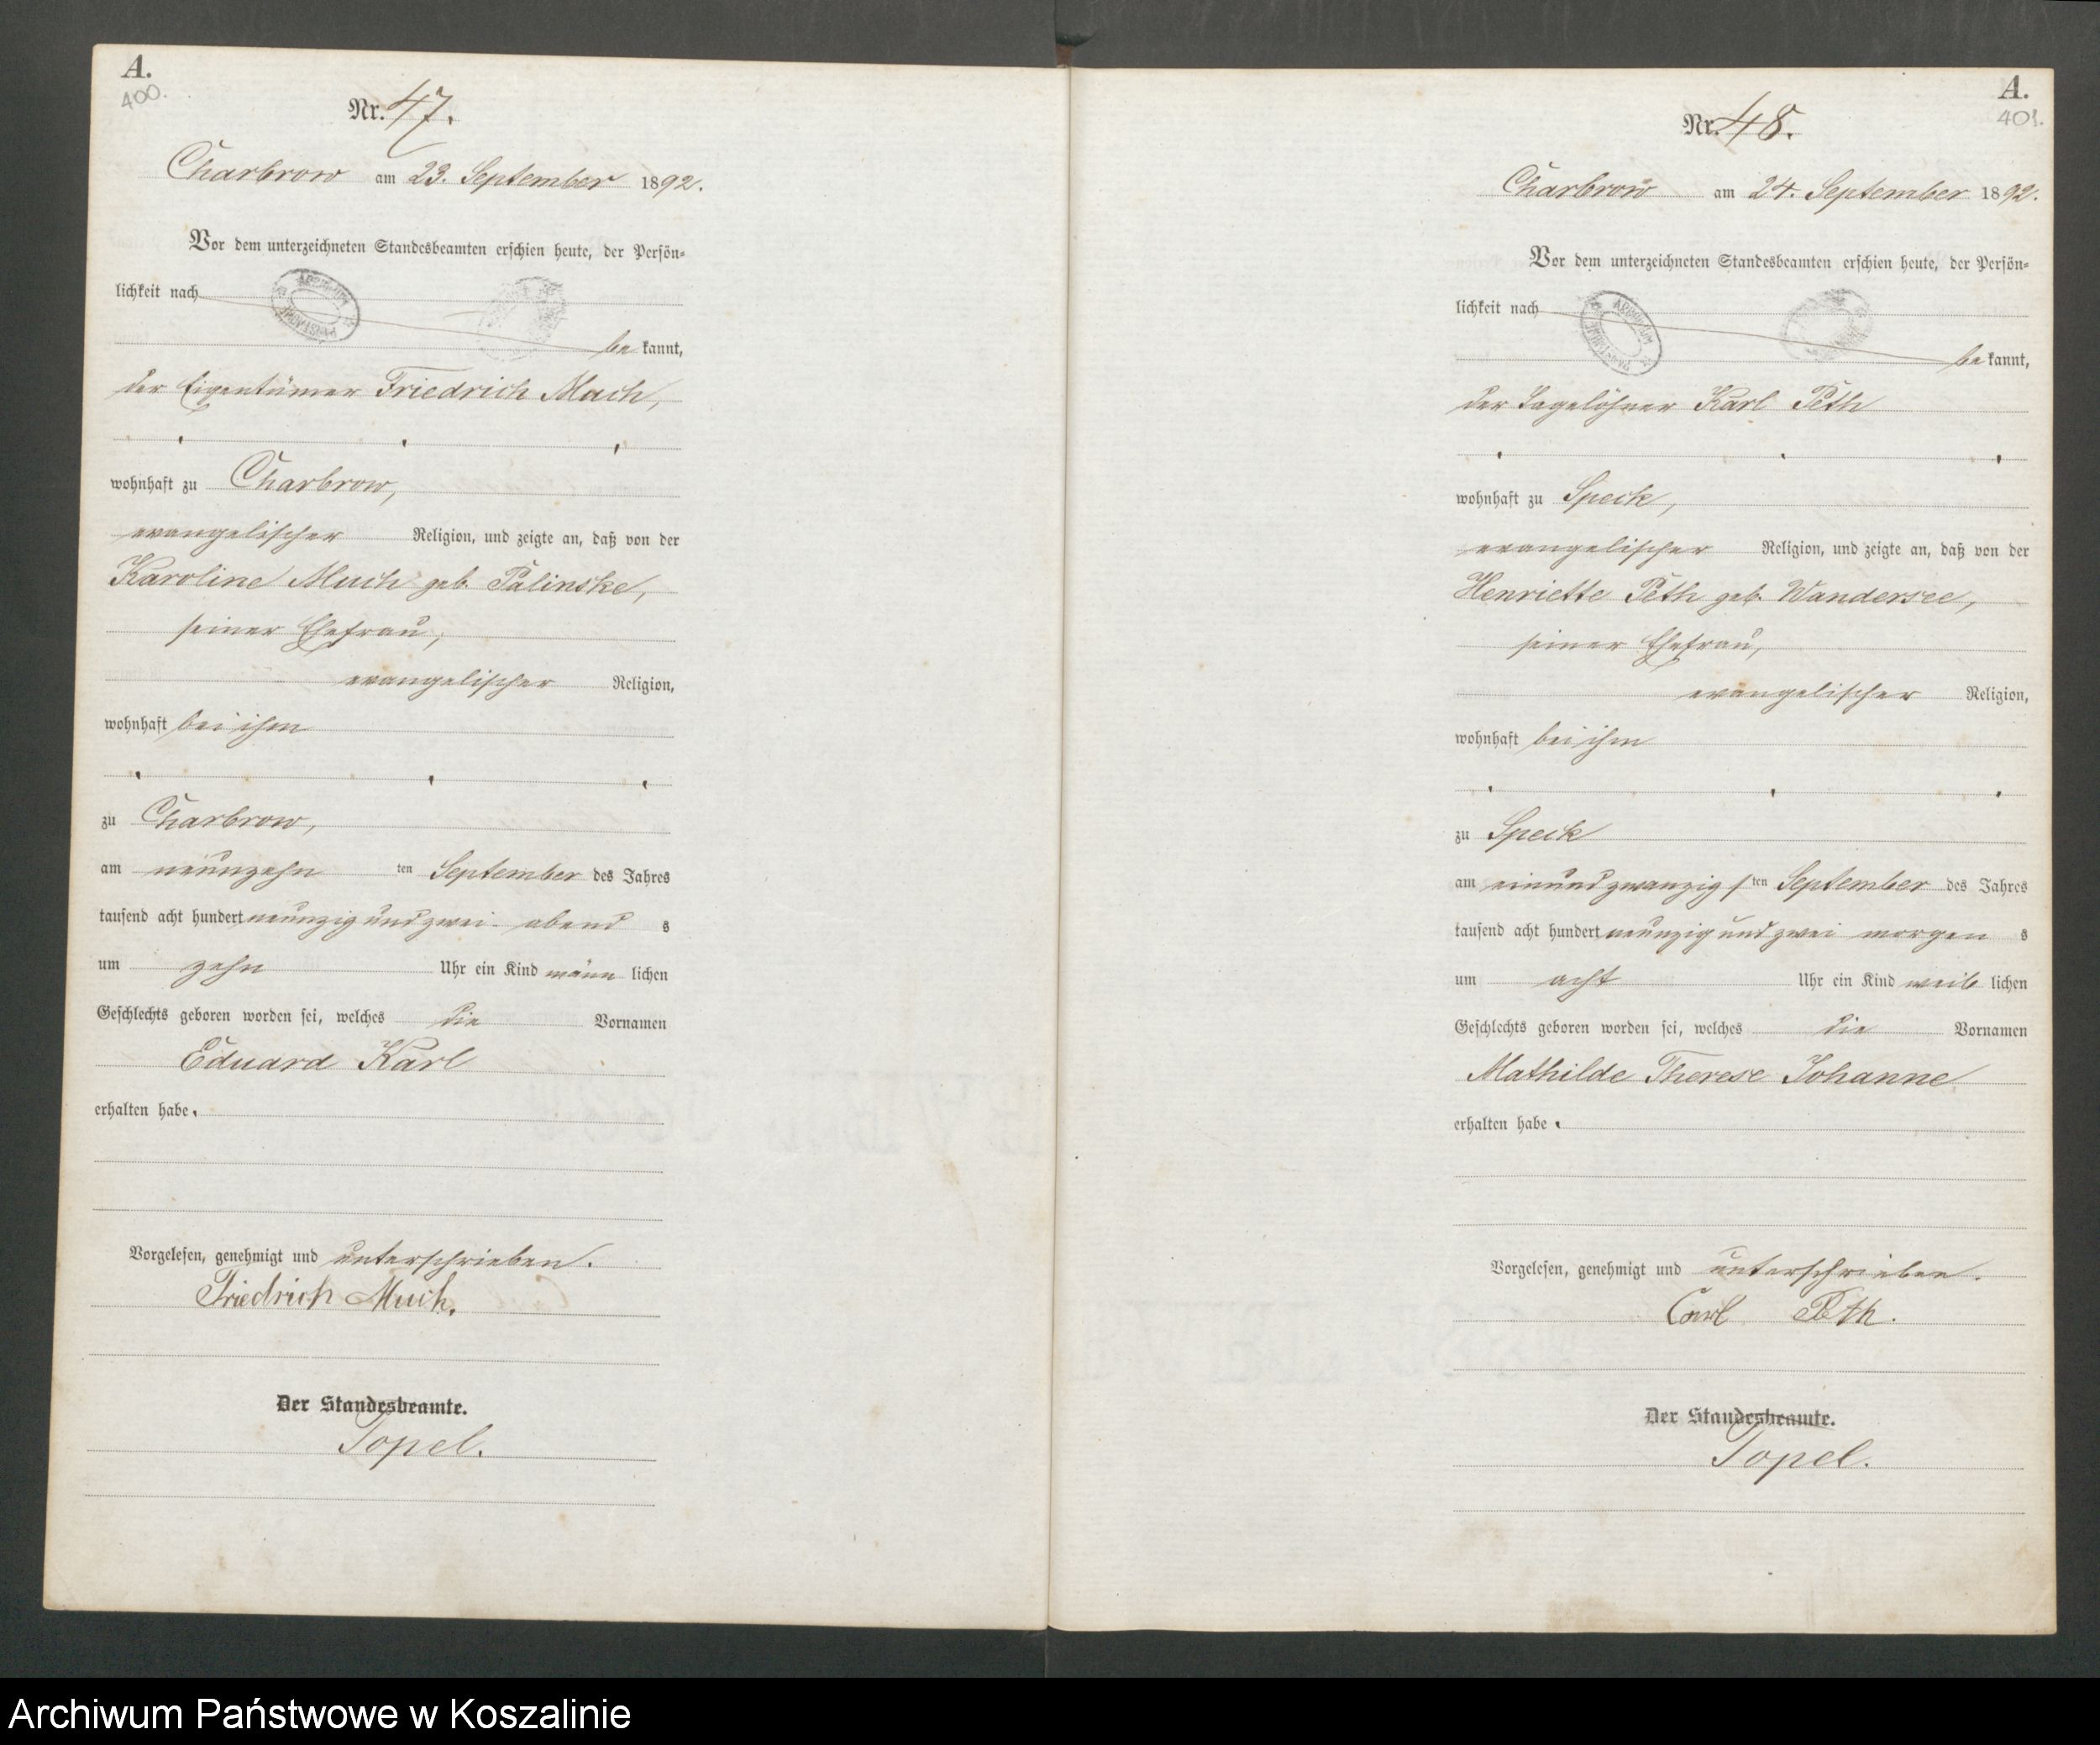 A.
400.
Nr. 47.
Charbrow am 23. September 1892.
Vor dem unterzeichneten Standesbeamten erschien heute, der Persön-
lichkeit nach
be kannt,
der Eigentümer Friedrich Much,
wohnhaft zu Charbrow,
evangelischer Religion, und zeigte an, daß von der
Karoline Much geb. Palinske,
seiner Ehefrau,
evangelischer Religion,
wohnhaft bei ihm
zu Charbrow,
am neunzehn ten September des Jahres
tausend acht hundert neunzig und zwei abend s
um zehn Uhr ein Kind männ lichen
Geschlechts geboren worden sei, welches die Vornamen
Eduard Karl
erhalten habe.
Vorgelesen, genehmigt und unterschrieben.
Friedrich Much.
Der Standesbeamte.
Topel.
A.
401.
Nr. 48.
Charbrow am 24. September 1892.
Vor dem unterzeichneten Standesbeamten erschien heute, der Persön-
lichkeit nach
be kannt,
der Tagelöhner Karl Peth
wohnhaft zu Speck,
evangelischer Religion, und zeigte an, daß von der
Henriette Peth geb. Wandersee,
seiner Ehefrau,
evangelischer Religion,
wohnhaft bei ihm
zu Speck
am einundzwanzigs ten September des Jahres
tausend acht hundert neunzig und zwei morgen s
um acht Uhr ein Kind weib lichen
Geschlechts geboren worden sei, welches die Vornamen
Mathilde Therese Johanne
erhalten habe.
Vorgelesen, genehmigt und unterschrieben.
Carl Peth.
Der Standesbeamte.
Topel.
Archiwum Państwowe w Koszalinie